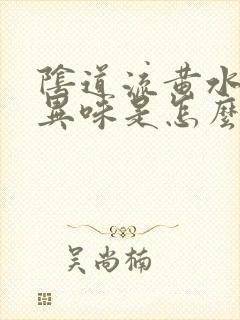 陰道流黃水
異味是怎麼
吴尚楠